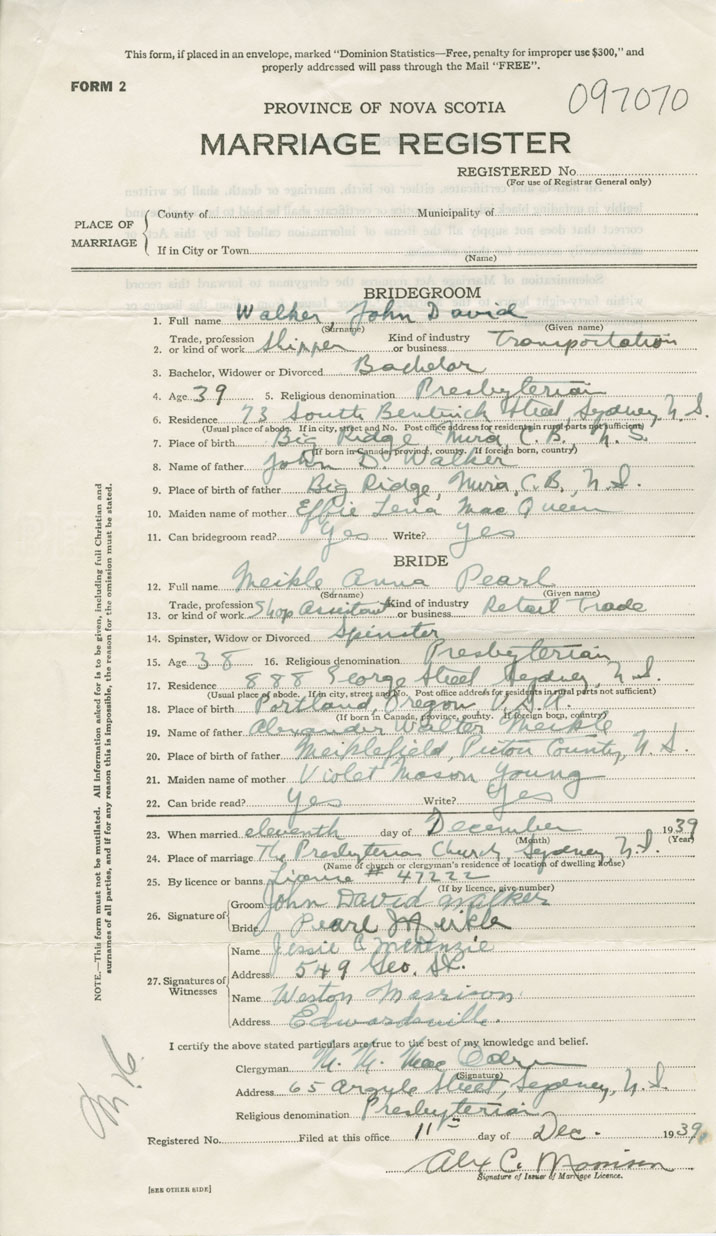 This form, if placed in an envelope, marked "Dominion Statistics—Free, penalty for improper use $300," and
properly addressed will pass through the Mail "FREE".
FORM 2
097070
PROVINCE OF NOVA SCOTIA
MARRIAGE REGISTER
REGISTERED No.
(For use of Registrar General only)
PLACE OF MARRIAGE
County of Municipality of
If in City or Town
(Name)
BRIDEGROOM
1. Full name Walker, John David
(Surname) (Given name)
2. Trade, profession or kind of work Shipper Kind of industry or business Transportation
3. Bachelor, Widower or Divorced Bachelor
4. Age 39 5. Religious denomination Presbyterian
6. Residence 73 South Bentinck Street, Sydney, N.S.
(Usual place of abode. If in city, street and No. Post office address for residents in rural parts not sufficient)
7. Place of birth Big Ridge Mira, C.B., N.S.
(If born in Canada, province, county. If foreign born, country)
8. Name of father John D. Walker
9. Place of birth of father Big Ridge, Mira, C.B., N.S.
10. Maiden name of mother Effie Lena MacQueen
11. Can bridegroom read? Yes Write? Yes
BRIDE
12. Full name Meikle Anna Pearl
(Surname) (Given name)
13. Trade, profession or kind of work Shop Assistant Kind of industry or business Retail Trade
14. Spinster, Widow or Divorced Spinster
15. Age 38 16. Religious denomination Presbyterian
17. Residence 888 George Street Sydney, N.S.
(Usual place of abode. If in city, street and No. Post office address for residents in rural parts not sufficient)
18. Place of birth Portland, Oregon U.S.A.
(If born in Canada, province, county. If foreign born, country)
19. Name of father Alexander Walter Meikle
20. Place of birth of father Meiklefield, Pictou County, N.S.
21. Maiden name of mother Violet Mason Young
22. Can bride read? Yes Write? Yes
23. When married eleventh day of December 1939
(Month) (Year)
24. Place of marriage The Presbyterian Church, Sydney, N.S.
(Name of church or clergyman's residence or location of dwelling house)
25. By licence or banns License # 47222
(If by licence, give number)
26. Signature of
Groom John David Walker
Bride Pearl Meikle
27. Signatures of Witnesses
Name Jessie C McKenzie
Address 549 Geo. St.
Name Weston Morrison
Address Edwardsville.
I certify the above stated particulars are true to the best of my knowledge and belief.
Clergyman M. M. Mac
(Signature)
Address 65 Argyle Street, Sydney, N.S.
Religious denomination Presbyterian
Registered No. Filed at this office 11th day of Dec. 1939
Alex C. Morrison
Signature of Issuer of Marriage Licence.
[SEE OTHER SIDE]
NOTE.—This form must not be mutilated. All information asked for is to be given, including full Christian and
surnames of all parties, and if for any reason this is impossible, the reason for the omission must be stated.